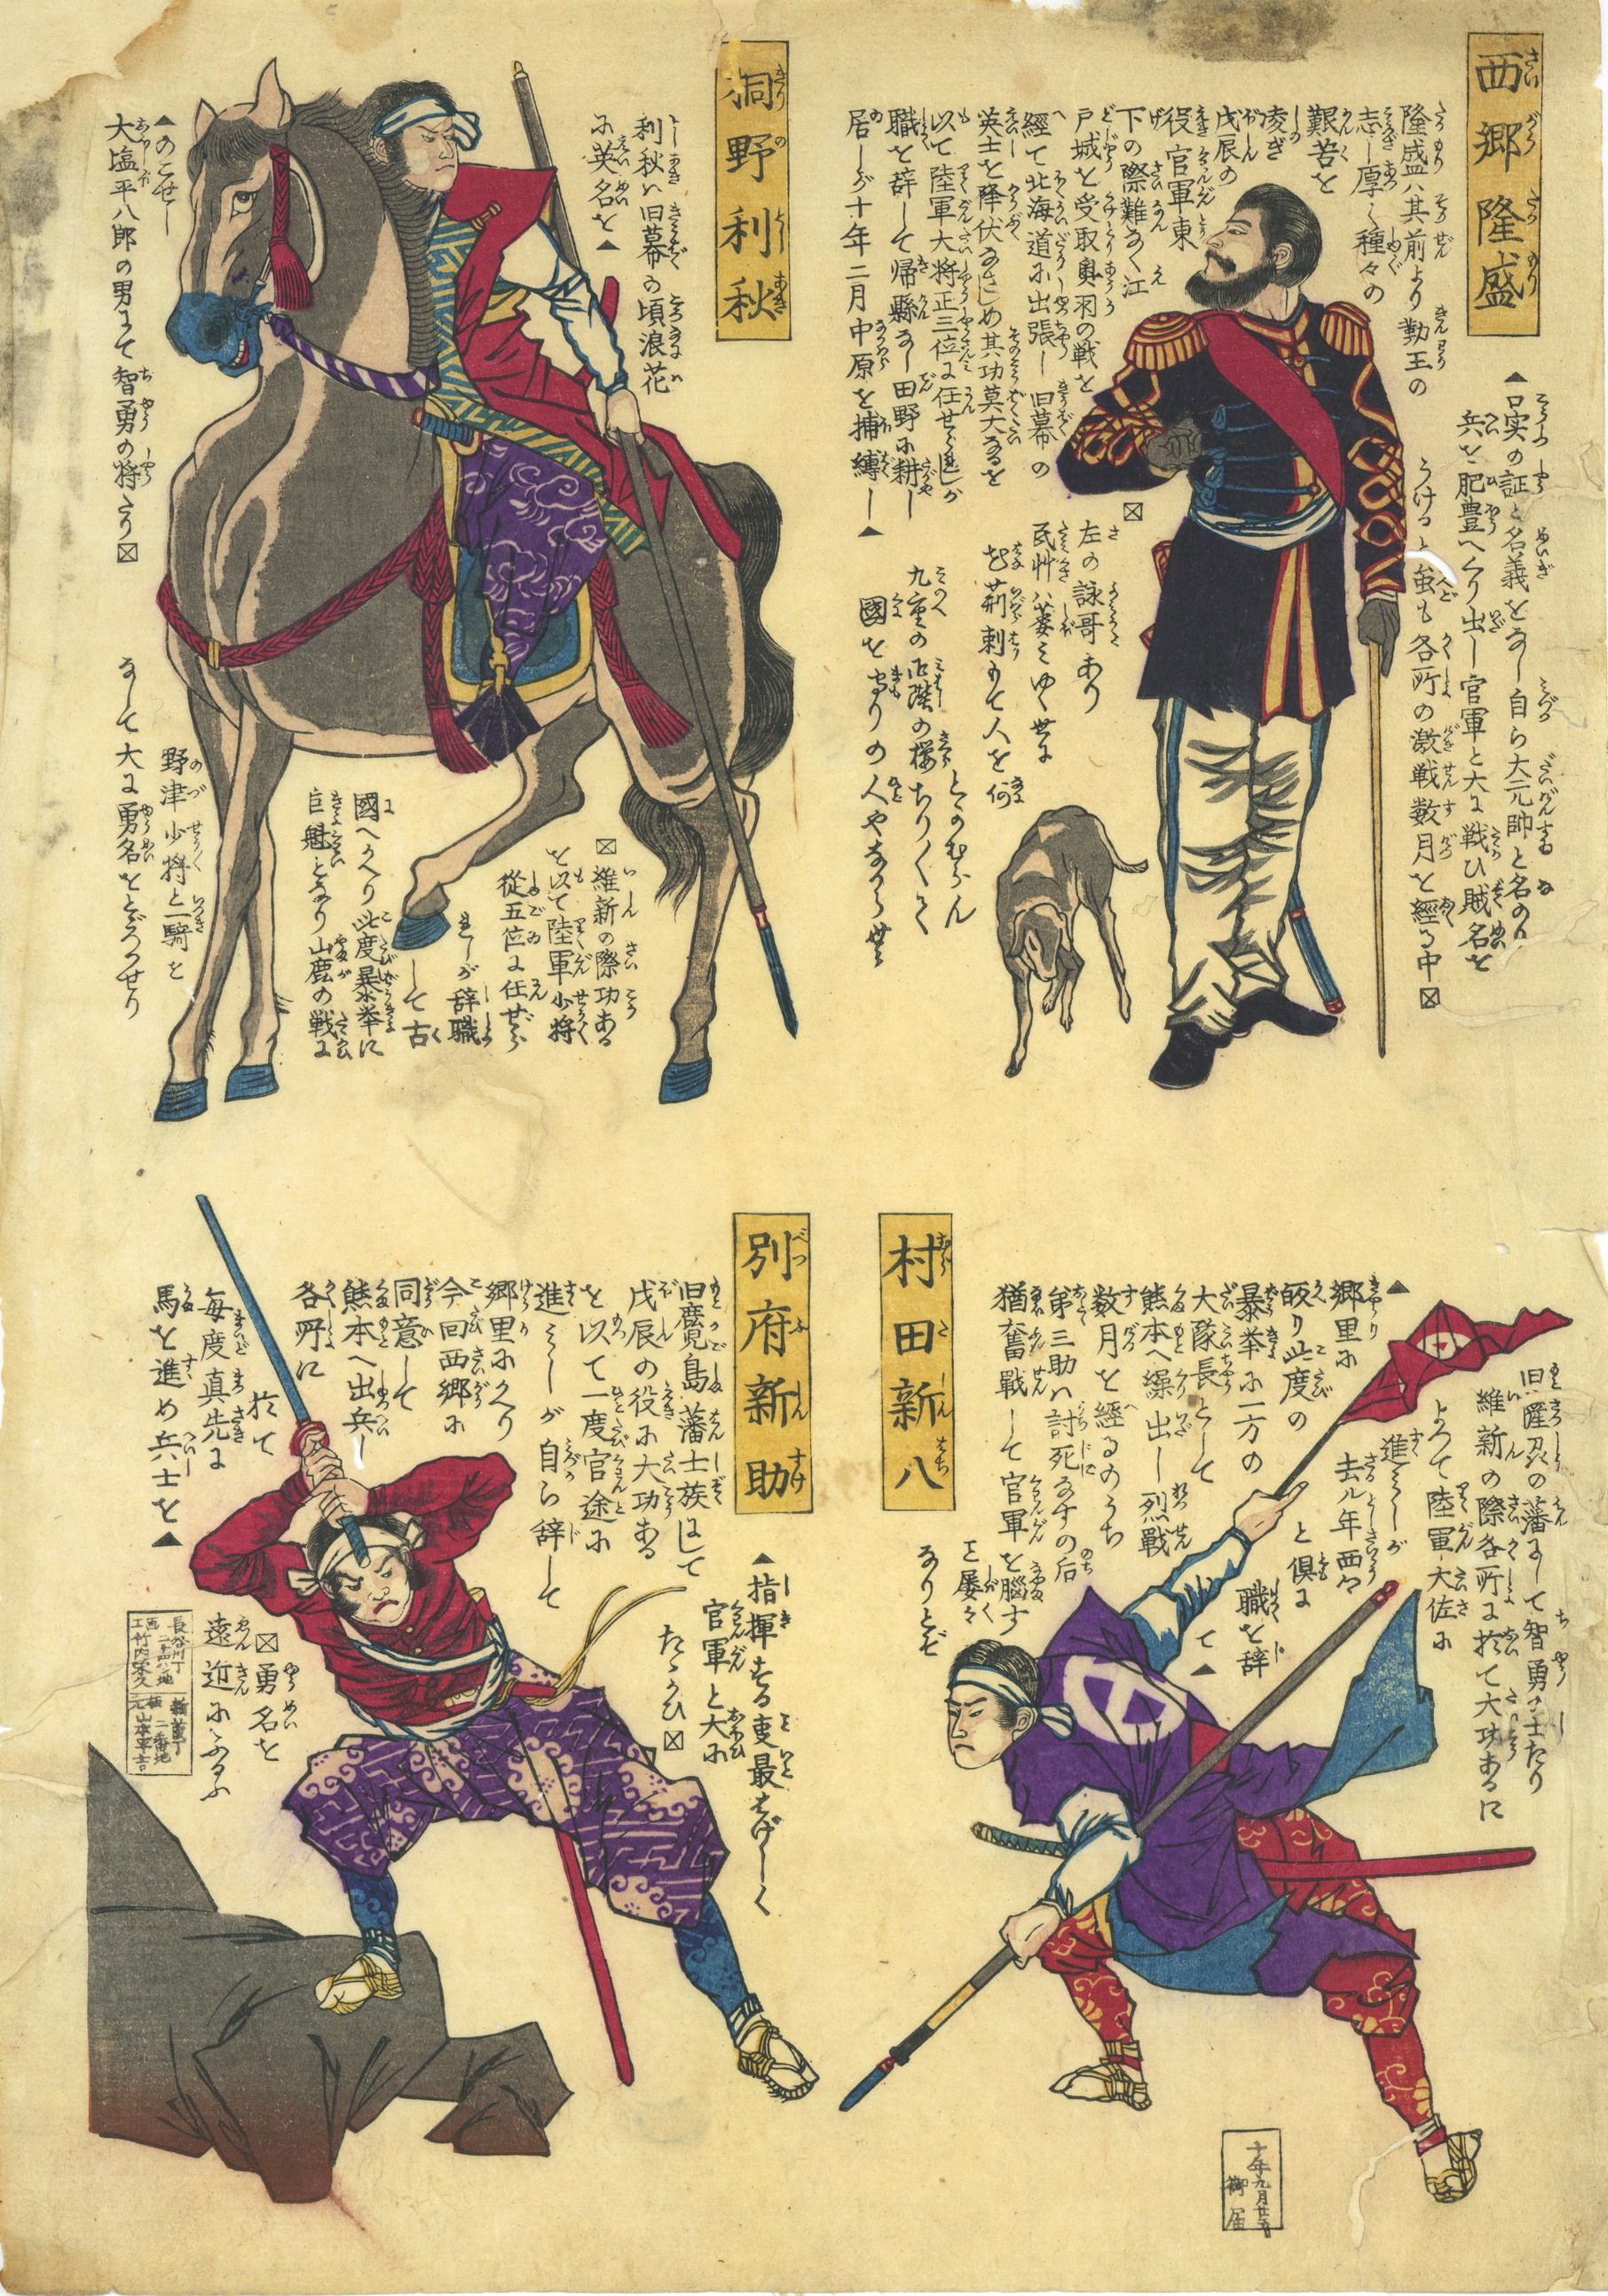 西郷隆盛
隆盛ハ其前より勤王の
志し厚く種々の
艱苦を
凌ぎ
戊辰の
役官軍東
下の際難なく江
戸城を受取奥羽の戦を
経て北海道に出張し旧幕の
英士を降伏なさしめ其功莫大なるを
以て陸軍大将正三位に任せられしが
職を辞して帰縣なし田野に耕し
居しが十年二月中原を捕縛し▲
▲口実の証と名義をなし自ら大元帥と名のり
兵を肥豊へくり出し官軍と大に戦ひ賊名を
うけると虽も各所の激戦数月を經る中☒
☒
左の詠哥あり
民艸ハ萎みゆく世に
荊刺もて人を何
とかむらん
九重の御階の櫻ちりゝゝて
國を守りの人やなからむ
洞野利秋
利秋ハ旧幕の頃浪花
に英名を▲
▲のこせし
大塩平八郎の男にて智勇の将たり☒
☒維新の際功ある
を以て陸軍少将
從五位に任ぜら
れしが辞職
して古
國へかへり此度暴挙に
巨魁となり山鹿の戦に
野津少将と一騎を
なして大に勇名をとどろかせり
村田新八
旧薩州の藩にて智勇の士たり
維新の際各所に於て大功あるに
よつて陸軍大佐に
進みしが
去ル年西郷
と倶に
職を辞
して▲
▲
郷里に
皈り此度の
暴挙に一方の
大隊長として
熊本へ繰出し烈戰
数月を經るのうち
弟三助ハ討死なすの后
猶奮戰して官軍を脳す
を屡々
なりとぞ
別府新助
旧鹿児島藩士族にして
戊辰の役に大功ある
を以て一度官途に
進みしが自ら辞して
郷里にかへり
今回西郷に
同意して
熊本へ出兵し
各所に
於て
毎度真先に
馬を進め兵士を▲
▲指揮する事最もはげしく
官軍と大に
たゝかひ☒
☒勇名を
遠近にふるふ
長谷川丁
二十四バン地
画工竹内栄久
二番地
板元山本平吉
十年九月廿五日
御届